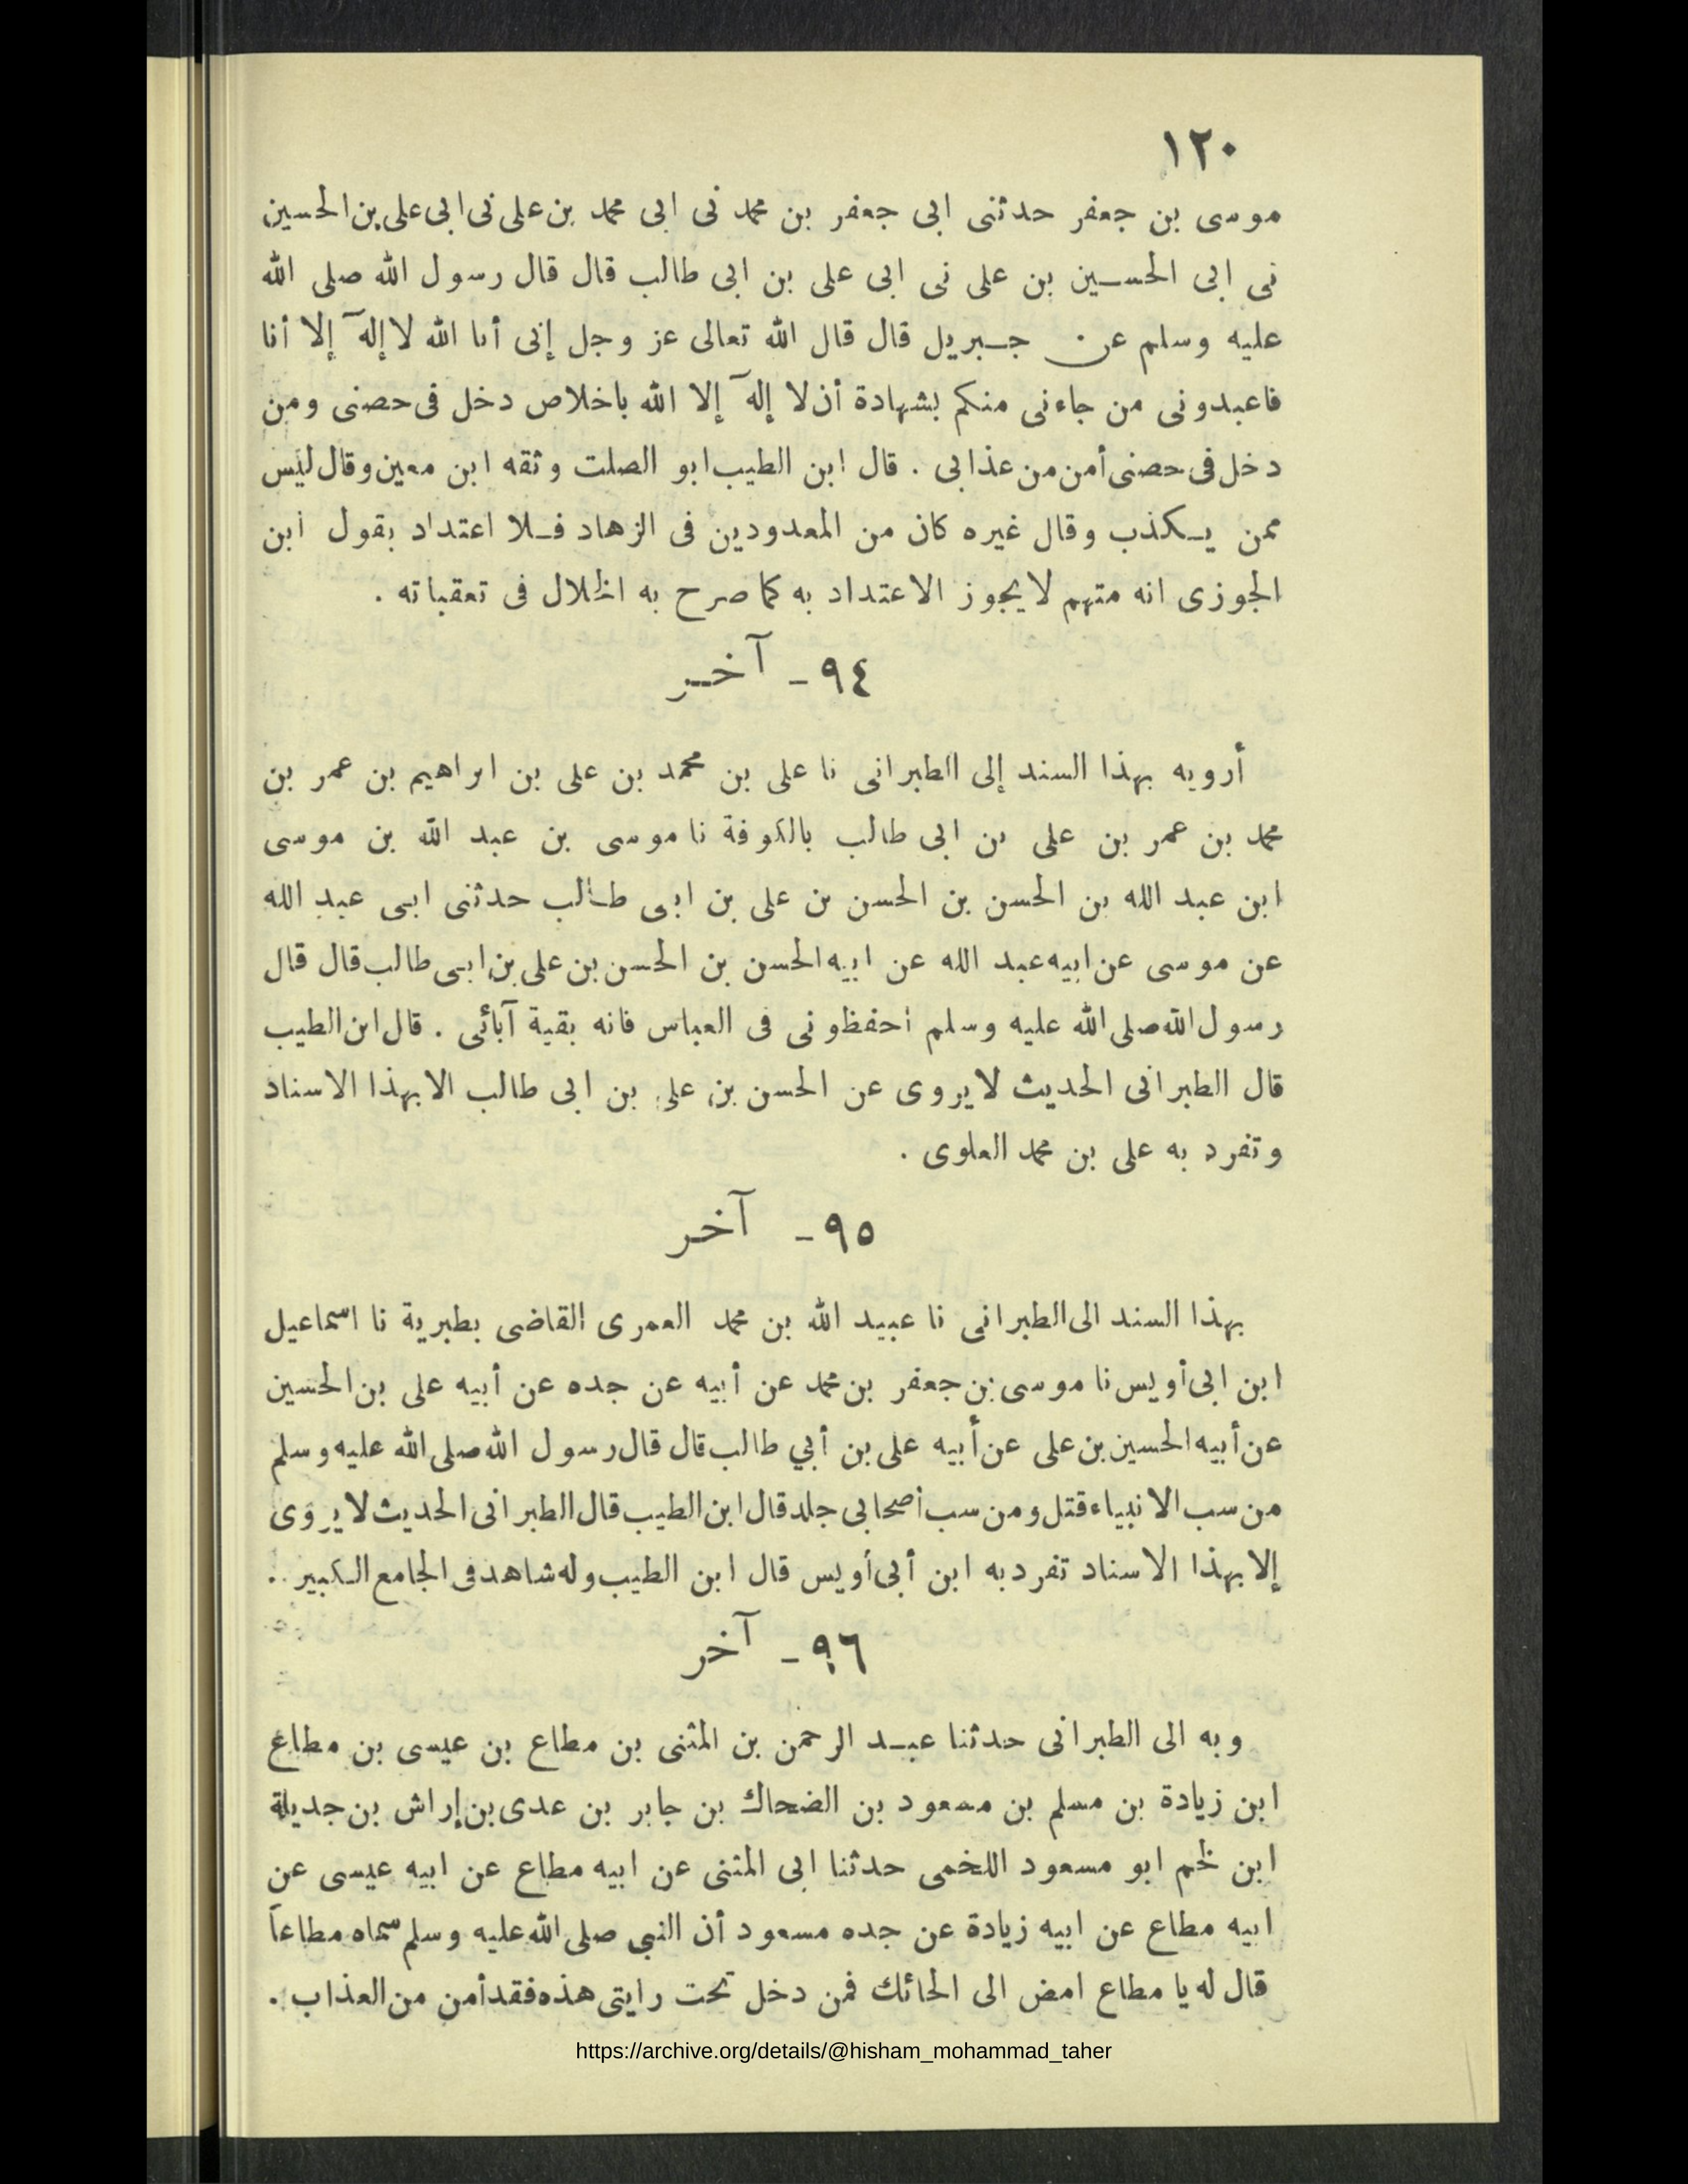 ١٢٠
موسى بن جعفر حدثنى ابى جعفر بن محمد نى ابى محمد بن على نى ابى على بن الحسين
نى ابى الحسين بن على نى ابى على بن ابى طالب قال قال رسول الله صلى الله
عليه وسلم عن جبريل قال قال الله تعالى عز وجل إنى أنا الله لا إله إلا أنا
فاعبدونى من جاءنى منكم بشهادة أن لا إله إلا الله باخلاص دخل فى حصنى ومن
دخل فى حصنى أمن من عذابى . قال ابن الطيب ابو الصلت وثقه ابن معين وقال ليس
ممن يكذب وقال غيره كان من المعدودين فى الزهاد فلا اعتداد بقول ابن
الجوزى انه متهم لا يجوز الاعتداد به كما صرح به الجلال فى تعقباته .
٩٤ - آخر
أرويه بهذا السند إلى الطبرانى نا على بن محمد بن على بن ابراهيم بن عمر بن
محمد بن عمر بن على بن ابى طالب بالكوفة نا موسى بن عبد الله بن موسى
ابن عبد الله بن الحسن بن الحسن بن على بن ابى طالب حدثنى ابى عبد الله
عن موسى عن ابيه عبد الله عن ابيه الحسن بن الحسن بن على بن ابى طالب قال قال
رسول الله صلى الله عليه وسلم احفظونى فى العباس فانه بقية آبائى . قال ابن الطيب
قال الطبرانى الحديث لا يروى عن الحسن بن على بن ابى طالب الا بهذا الاسناد
وتفرد به على بن محمد العلوى .
٩٥ - آخر
بهذا السند الى الطبرانى نا عبيد الله بن محمد العمرى القاضى بطبرية نا اسماعيل
ابن ابى أويس نا موسى بن جعفر بن محمد عن أبيه عن جده عن أبيه على بن الحسين
عن أبيه الحسين بن على عن أبيه على بن أبي طالب قال قال رسول الله صلى الله عليه وسلم
من سب الانبياء قتل ومن سب أصحابى جلد قال ابن الطيب قال الطبرانى الحديث لا يروى
إلا بهذا الاسناد تفرد به ابن أبى أويس قال ابن الطيب وله شاهد فى الجامع الكبير .
٩٦ - آخر
وبه الى الطبرانى حدثنا عبد الرحمن بن المثنى بن مطاع بن عيسى بن مطاع
ابن زيادة بن مسلم بن مسعود بن الضحاك بن جابر بن عدى بن إراش بن جديلة
ابن لخم ابو مسعود اللخمى حدثنا ابى المثنى عن ابيه مطاع عن ابيه عيسى عن
ابيه مطاع عن ابيه زيادة عن جده مسعود أن النبي صلى الله عليه وسلم سماه مطاعاً
قال له يا مطاع امض الى الحائك فمن دخل تحت رايتى هذه فقد أمن من العذاب .
https://archive.org/details/@hisham_mohammad_taher